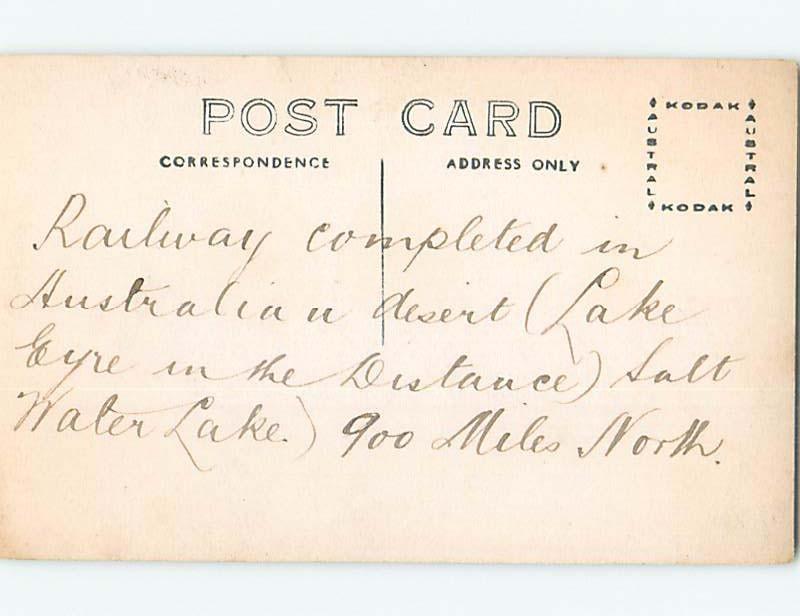 POST CARD
CORRESPONDENCE
ADDRESS ONLY
KODAK
AUSTRAL
AUSTRAL
KODAK
Railway completed in
Australian desert (Lake
Eyre in the Distance) Salt
Water Lake.) 900 Miles North.